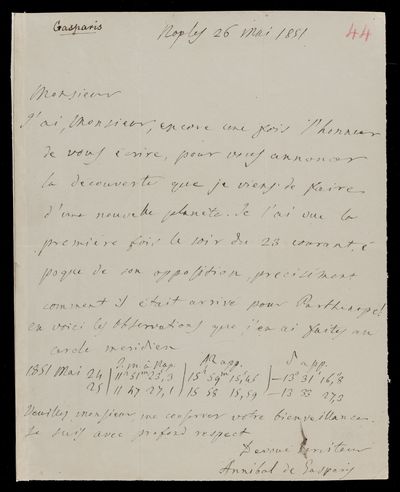 Gasparis
Naples 26 Mai 1851
44
Monsieur
J'ai, Monsieur, encore une fois l'honneur
de vous écrire, pour vous annoncer
la decouverte que je viens de faire
d'une nouvelle planète. Je l'ai vue la
première fois le soir du 23 courant, é
poque de son opposition, precisément
comment il était arrivé pour Parthenope!
en voici les observations que j'en ai faites au
cercle meridien
T. m. à Nap. R app. δ app.
1851 Mai 24 11h 51m 23,3 15h 59m 15,46 −13° 31' 16,8
25 11 47 27,1 15 58 15,59 −13 33 27,3
Veuillez monsieur me conserver votre bienveillance.
Je suis avec profond respect
Devoué serviteur
Annibal de Gasparis